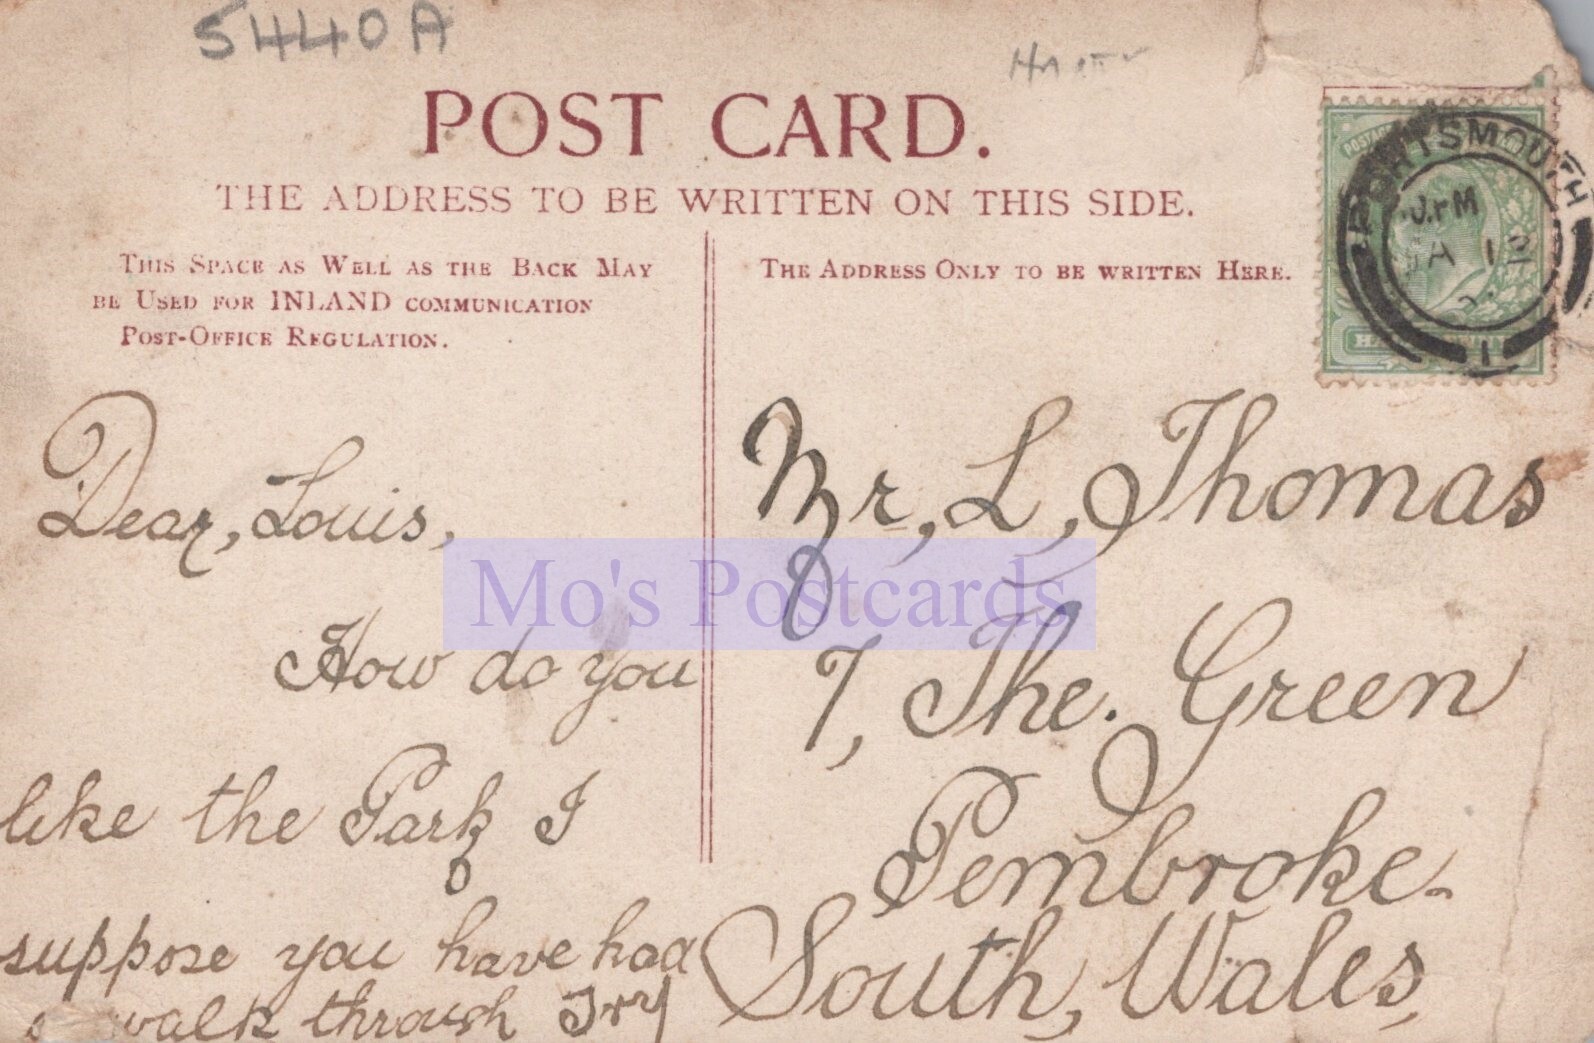 5440A
POST CARD.
THE ADDRESS TO BE WRITTEN ON THIS SIDE.
THIS SPACE AS WELL AS THE BACK MAY
BE USED FOR INLAND COMMUNICATION
POST-OFFICE REGULATION.
THE ADDRESS ONLY TO BE WRITTEN HERE.
PORTSMOUTH
JA 12
1
POSTAGE
Dear, Louis,
How do you
like the Park I
suppose you have had
walk through
Mr, L, Thomas
7, The. Green
Pembroke.
South, Wales,
Mo's Postcards